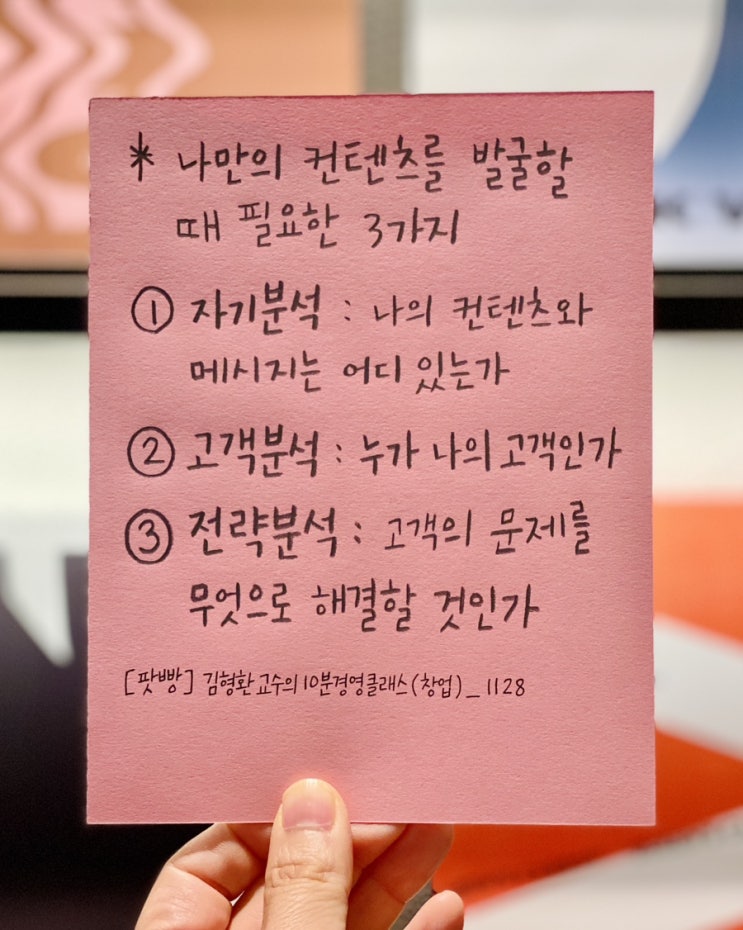 * 나만의 컨텐츠를 발굴할
때 필요한 3가지
① 자기분석 : 나의 컨텐츠와
메시지는 어디 있는가
② 고객분석 : 누가 나의 고객인가
③ 전략분석 : 고객의 문제를
무엇으로 해결할 것인가
[팟빵] 김형환교수의 10분경영클래스(창업)_1128